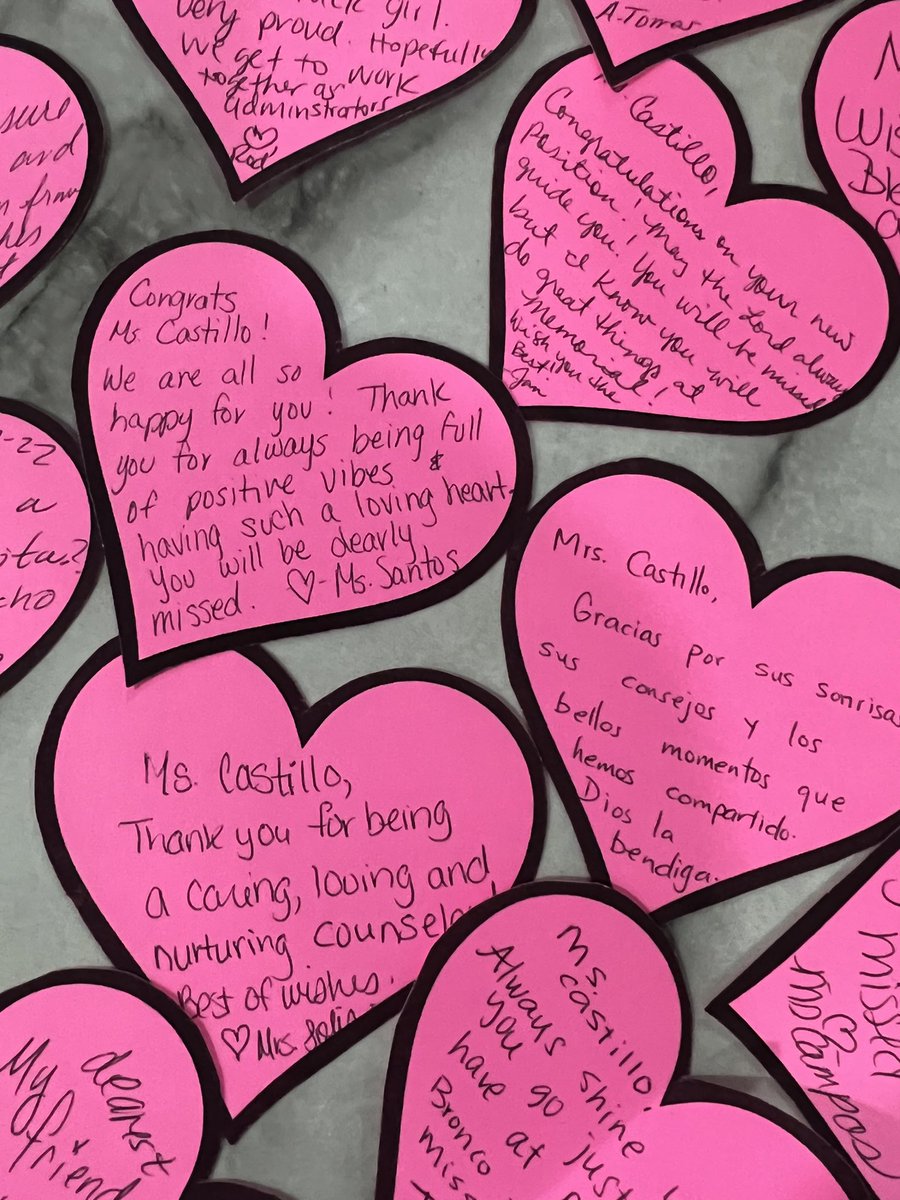 girl.
very proud. Hopefully
we get to
together as work
adminstrators
Rod
A. Tomas
Castillo,
Congratulations on your new
position! May the Lord always
guide you! You will be missed
but I know you will
do great things at
Memorial!
Wish you the
Best!
Jan
Wis
Ble
sure
and
Congrats
Ms. Castillo!
We are all so
happy for you! Thank
you for always being full
of positive vibes &
having such a loving heart.
You will be dearly
missed. ♡- Ms. Santos
-22
a
cho
Mrs. Castillo,
Gracias por sus sonrisas
sus consejos y los
bellos momentos que
hemos compartido.
Dios la
bendiga.
Ms. Castillo,
Thank you for being
a caring, loving and
nurturing counselor!
Best of wishes.
♡ Mrs. Solis
Ms.
Castillo,
Always shine
you go just
have at
Bronco
Miss
missed
♡
Ms Campos
My dearest
friend